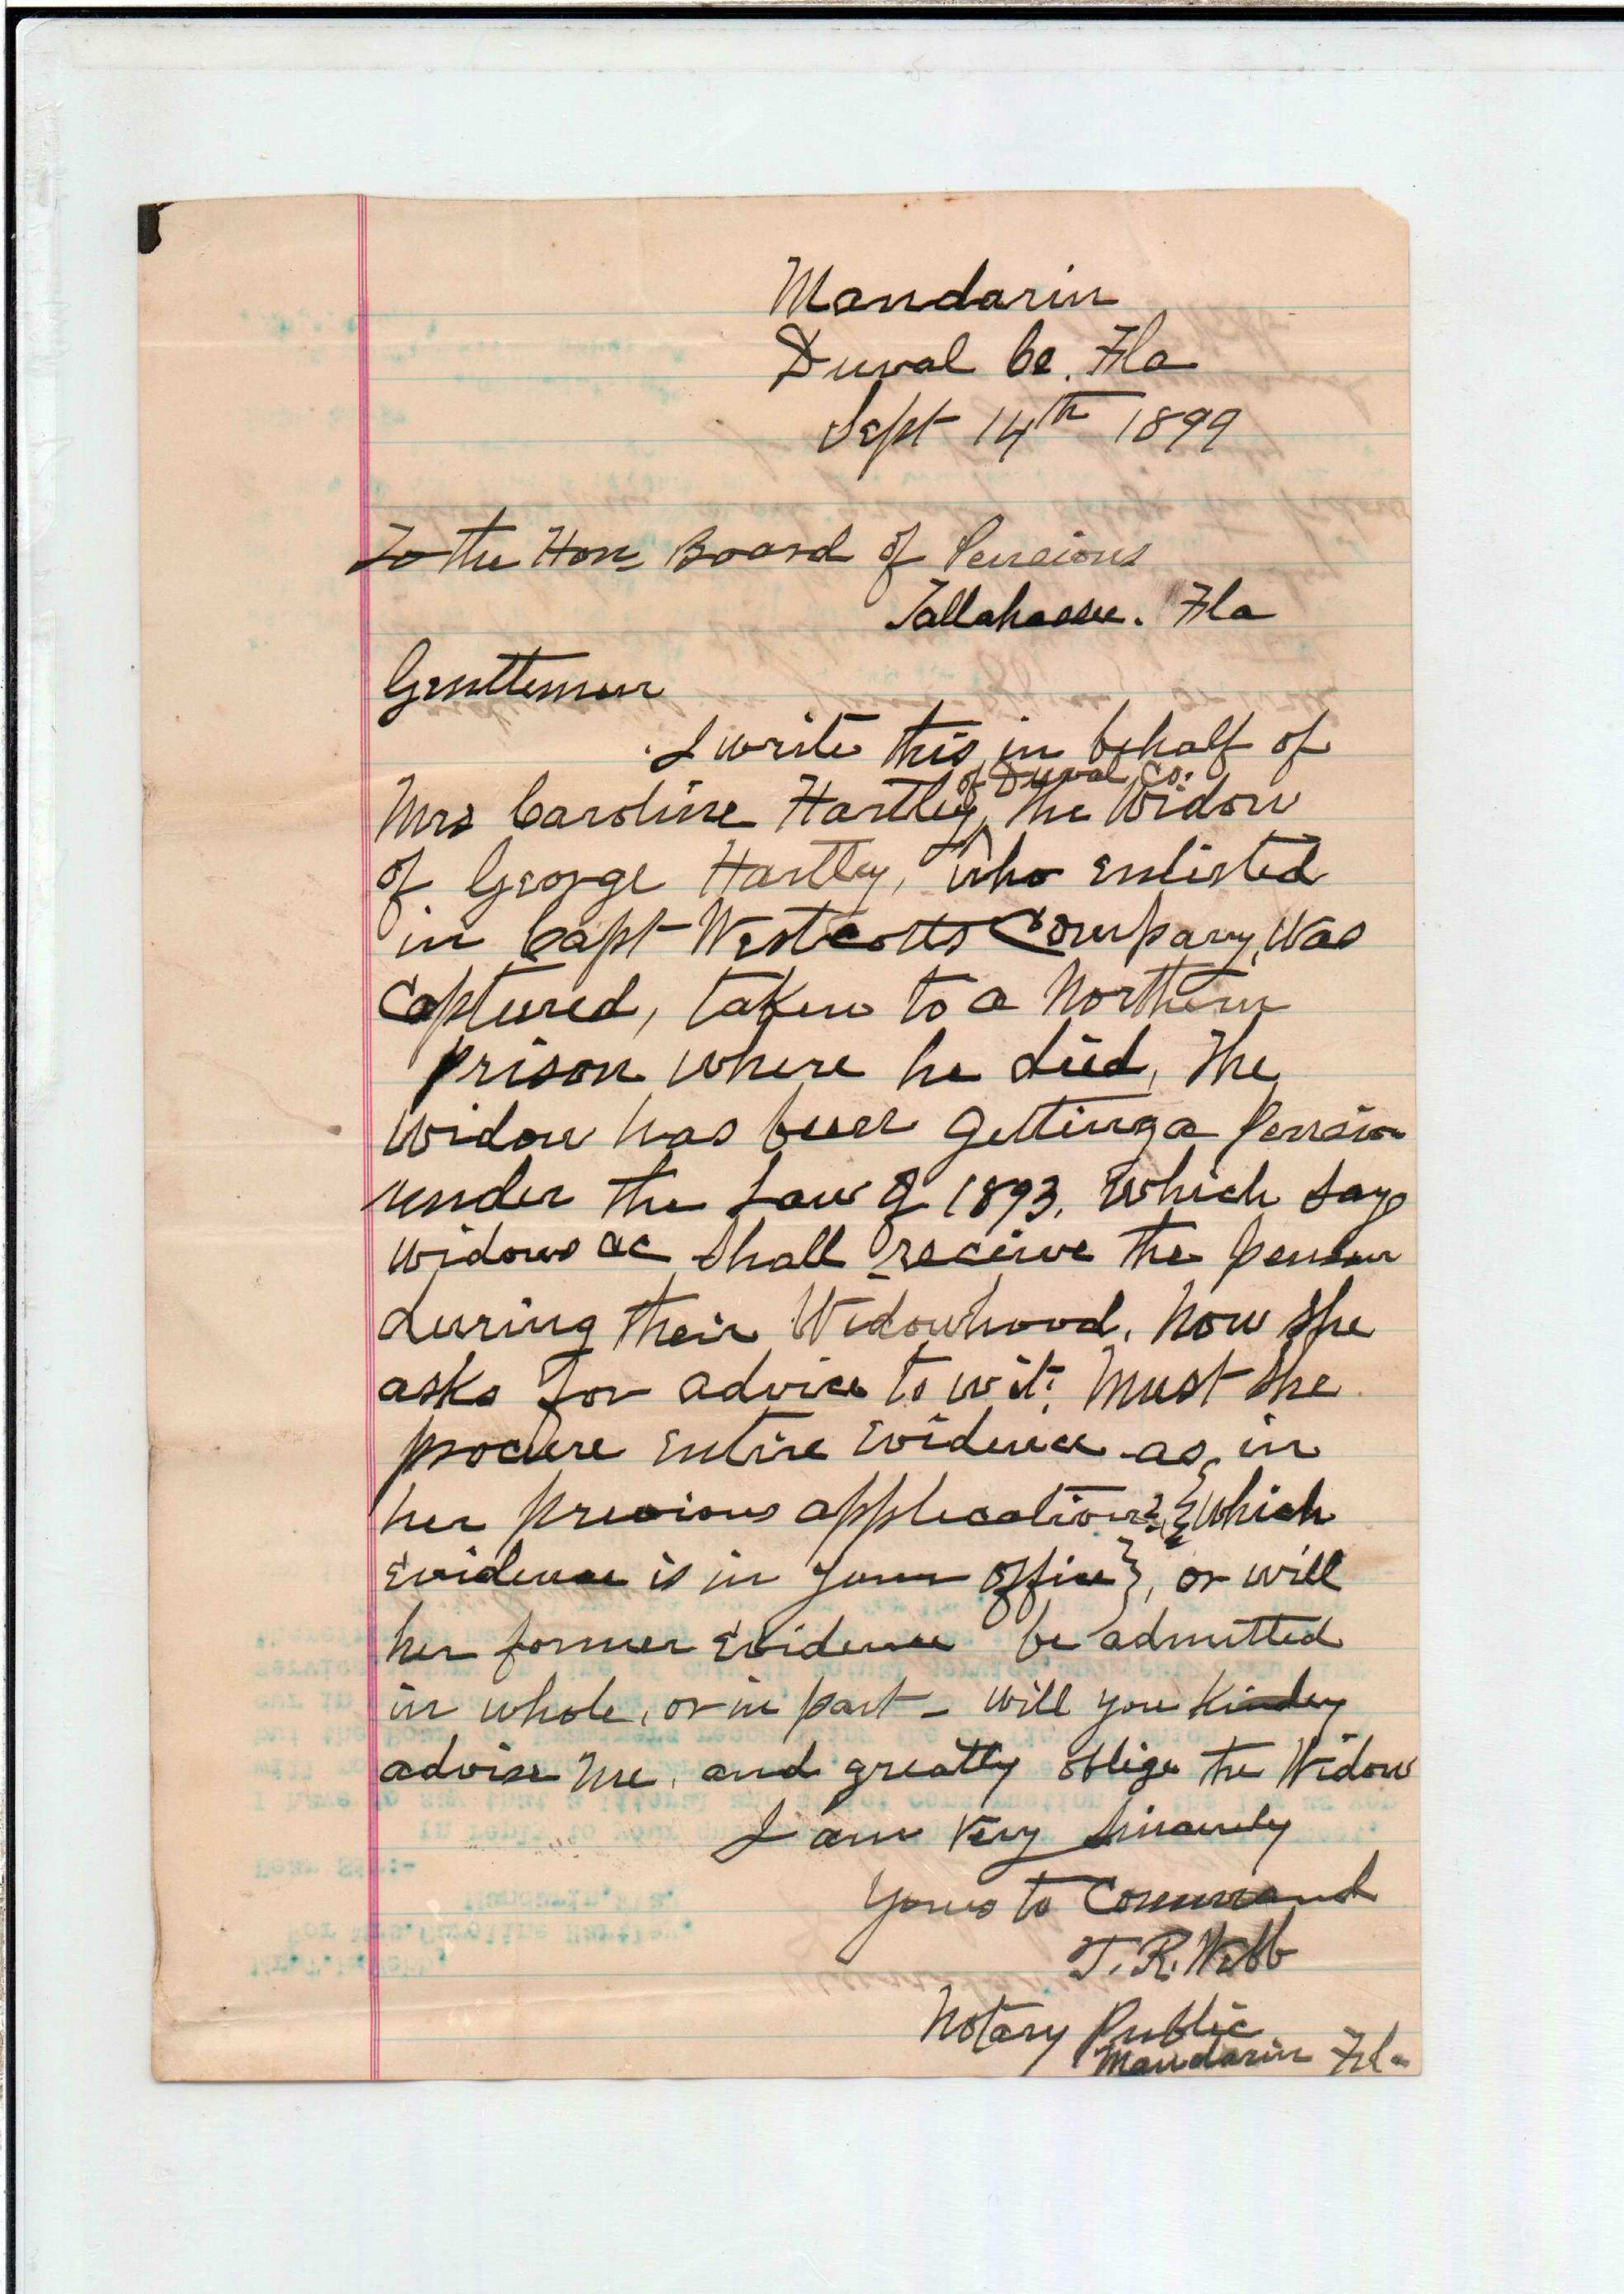 Mandarin
Duval Co. Fla
Sept 14th 1899
To the Hon Board of Pensions
Tallahassee. Fla
Gentlemen
I write this in behalf of
of Duval Co.
Mrs Caroline Hartley, the Widow
of George Hartley, who enlisted
in Capt Westcotts Company, was
Captured, taken to a Northern
prison where he died, The
widow has been getting a Pension
under the Law of 1893, which says
widows &c shall receive the pension
during their Widowhood. Now she
asks for advice to wit: Must she
procure entire Evidence as in
her previous application {which
Evidence is in your office}, or will
her former Evidence be admitted
in whole, or in part - will you kindly
advise me, and greatly oblige the Widow
I am Very Sincerely
Yours to Command
T. R. Webb
Notary Public
Mandarin Fla